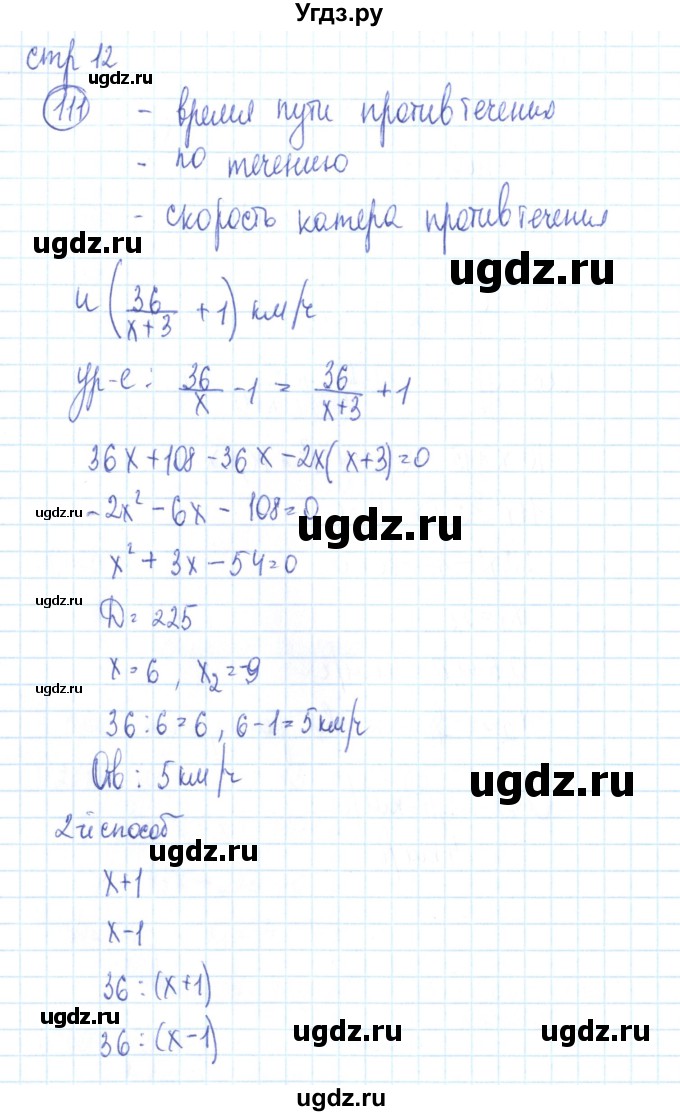 Угдз.ру
стр 12
ugdz.ru
111 - время пути против течения
- по течению
- скорость катера против течения
ugdz.ru
ugdz.ru
и (36/(x+3) + 1) км/ч
ур-е: 36/x - 1 = 36/(x+3) + 1
36x + 108 - 36x - 2x(x+3) = 0
ugdz.ru
- 2x² - 6x - 108 = 0
ugdz.ru
x² + 3x - 54 = 0
ugdz.ru
D = 225
x = 6, x₂ = -9
ugdz.ru
36 : 6 = 6, 6 - 1 = 5 км/ч
Отв: 5 км/ч
ugdz.ru
ugdz.ru
2-й способ
ugdz.ru
x+1
x-1
36 : (x+1)
ugdz.ru
36 : (x-1)
ugdz.ru
ugdz.ru
ugdz.ru